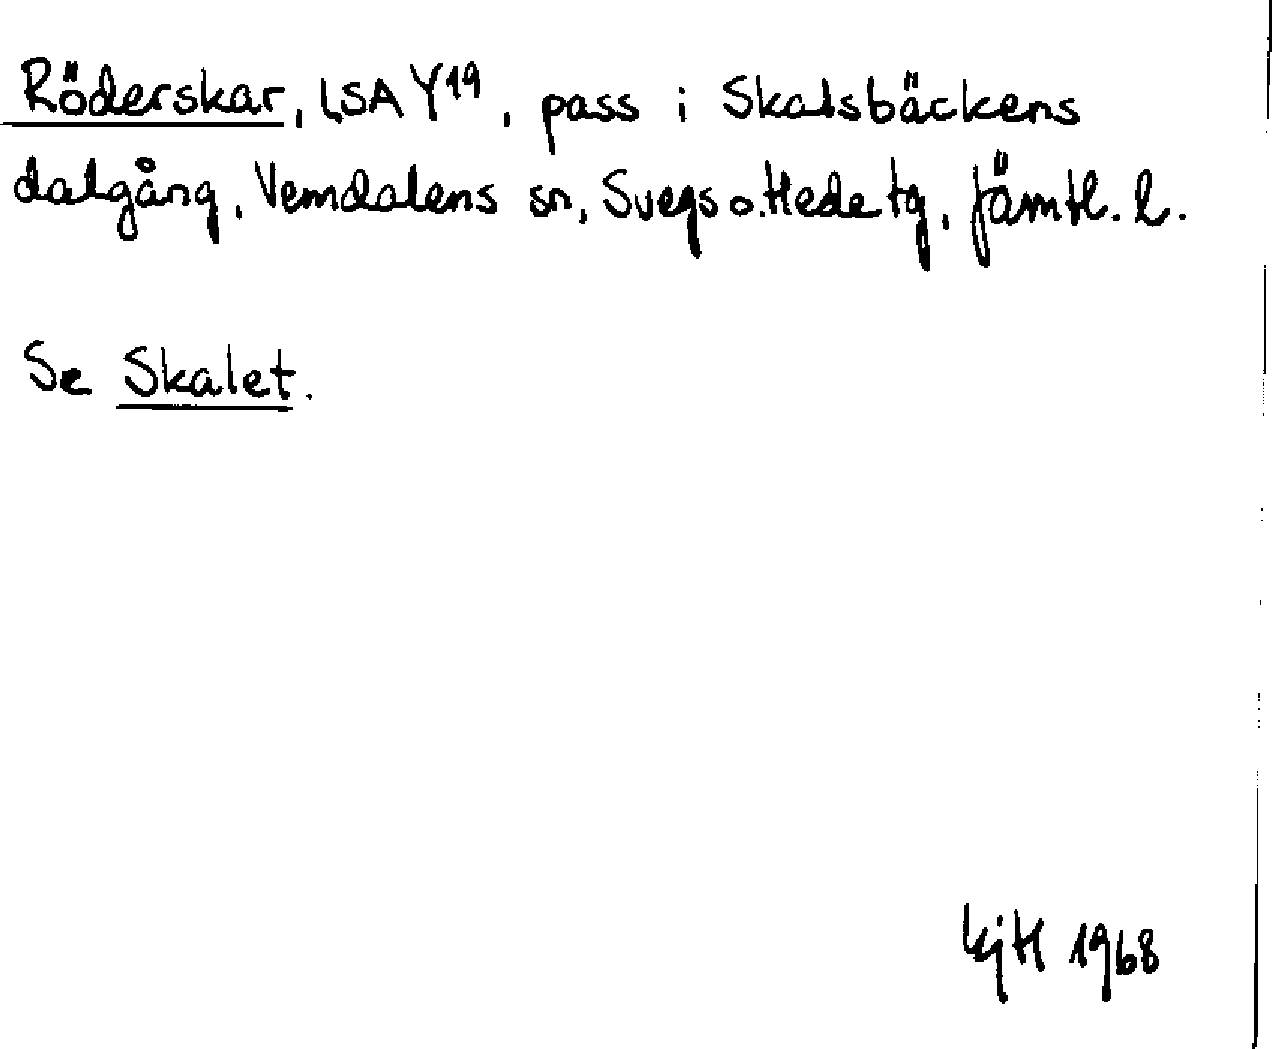 Röderskar, LSA Y19, pass i Skalsbäckens
dalgång, Vemdalens sn, Svegs o. Hede tg, Jämtl. l.
Se Skalet.
KjH 1968